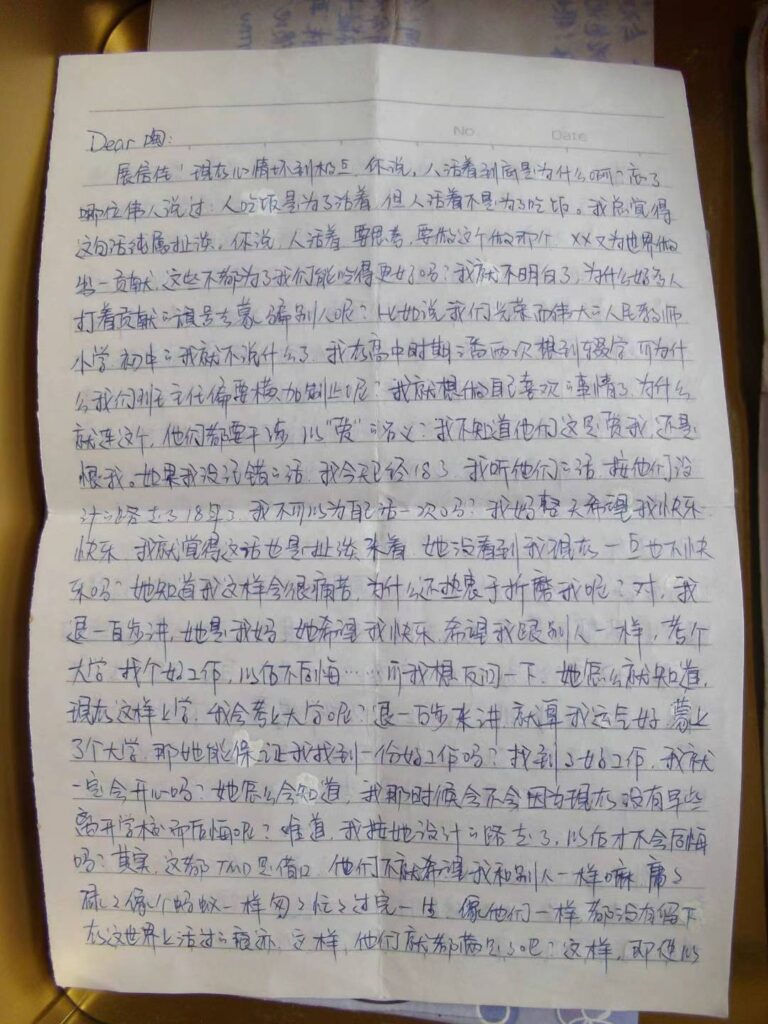 No. Date
Dear 陶:
展信佳! 现在心情坏到极点, 你说, 人活着到底是为什么啊? 忘了
哪位伟人说过: 人吃饭是为了活着, 但人活着不是为了吃饭。我总觉得
这句话纯属扯谈, 你说, 人活着, 要思考, 要做这个做那个, XX又为世界做
出一贡献, 这些不都为了我们能吃得更好吗? 我就不明白了, 为什么好多人
打着贡献的旗号去蒙骗别人呢? 比如说我们光荣而伟大的人民教师
小学, 初中的我就不说什么了, 我在高中时期的两次想到辍学, 而为什
么我们班主任偏要横加制止呢? 我就想做自己喜欢的事情了, 为什么
就连这个, 他们都要干涉, 以"爱"的名义? 我不知道他们这是爱我, 还是
恨我。如果我没记错的话, 我今天已经18了, 我听他们的话, 按他们设
计的路走了18年了, 我不可以为自己活一次吗? 我妈整天希望我快乐
快乐, 我就觉得这话也是扯谈来着, 她没看到我现在一点也不快
乐吗? 她知道我这样会很痛苦, 为什么还热衷于折磨我呢? 对, 我
退一百步讲, 她是我妈, 她希望我快乐, 希望我跟别人一样, 考个
大学, 找个好工作, 以后不后悔……可我想反问一下, 她怎么就知道,
现在这样上学, 我会考上大学呢? 退一百步来讲, 就算我运气好, 蒙上
了个大学, 那她能保证我找到一份好工作吗? 找到了好工作, 我就
一定会开心吗? 她怎么会知道, 我那时候会不会因为现在没有早些
离开学校而后悔呢? 难道, 我按她设计的路走了, 以后才不会后悔
吗? 其实, 这都TMD是借口, 他们不就希望我和别人一样嘛, 庸庸
碌碌像个蚂蚁一样匆匆忙忙过完一生, 像他们一样都没有留下
在这世界上活过的痕迹, 这样, 他们就都满足了吧? 这样, 即使以